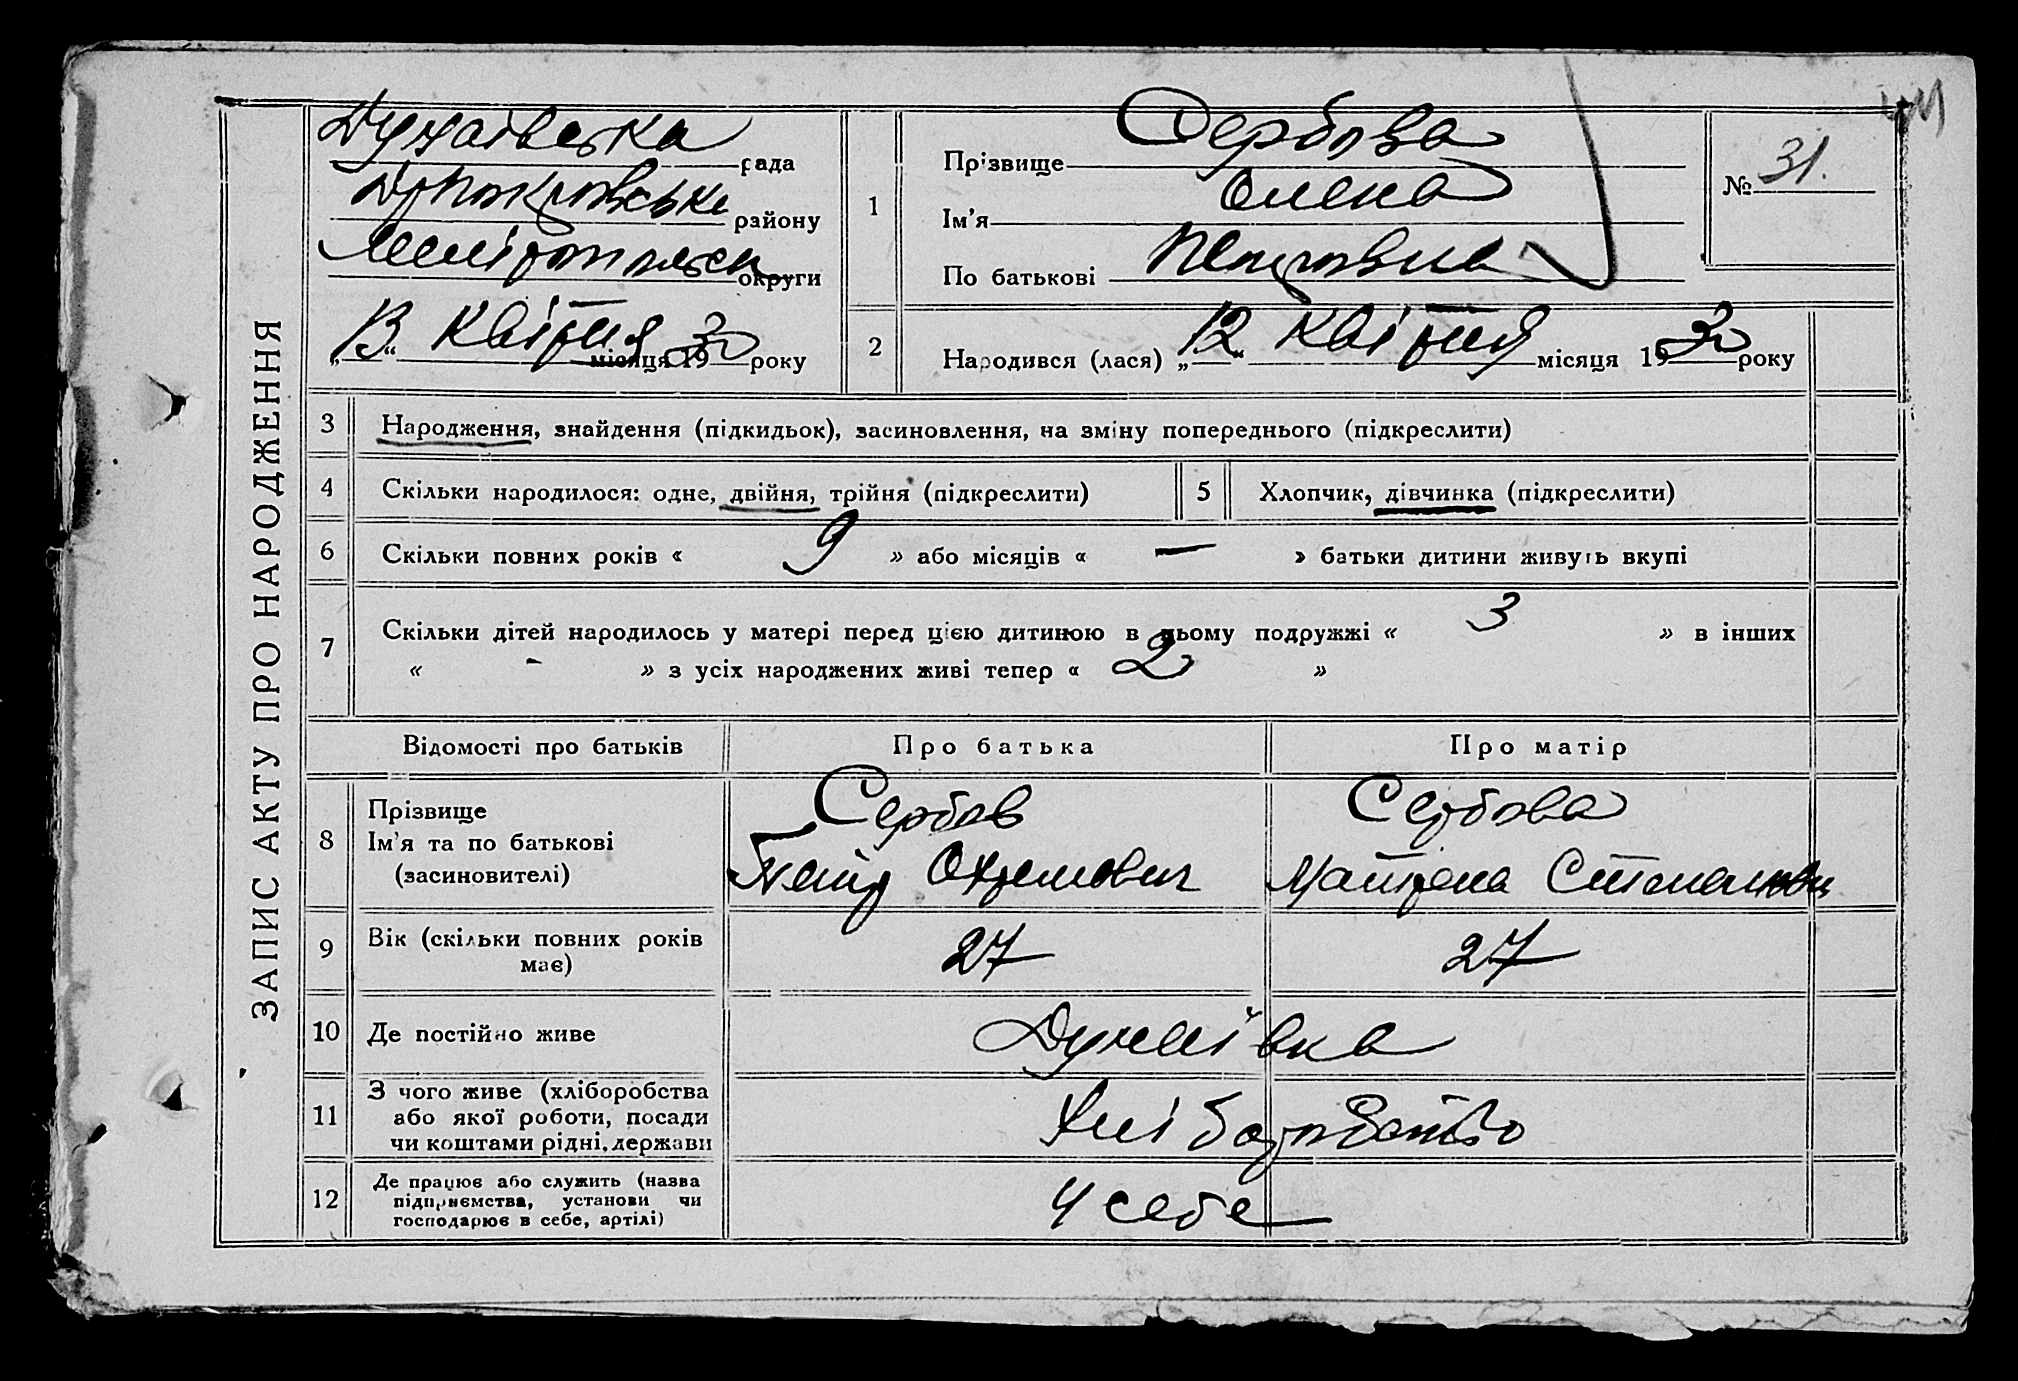 ЗАПИС АКТУ ПРО НАРОДЖЕННЯ
Дунаївська рада
району
округи
„13“ Квітня місяця 1930 року
1
Прізвище Сербова
Ім'я Олена
По батькові Петровна
№ 31.
2
Народився (лася) „12“ Квітня місяця 1930 року
3 Народження, знайдення (підкидьок), засиновлення, на зміну попереднього (підкреслити)
4 Скільки народилося: одне, двійня, трійня (підкреслити)
5 Хлопчик, дівчинка (підкреслити)
6 Скільки повних років « 9 » або місяців « — » батьки дитини живуть вкупі
7 Скільки дітей народилось у матері перед цією дитиною в цьому подружжі « 3 » в інших
« - » з усіх народжених живі тепер « 2 »
Відомості про батьків
Про батька
Про матір
8
Прізвище
Ім'я та по батькові
(засиновителі)
Сербов
Петр
Сербова
Матрена
9
Вік (скільки повних років
має)
27
27
10 Де постійно живе
Дунаївка
11
З чого живе (хліборобства
або якої роботи, посади
чи коштами рідні, держави
Хліборобство
12
Де працює або служить (назва
підприємства, установи чи
господарює в себе, артілі)
У себе